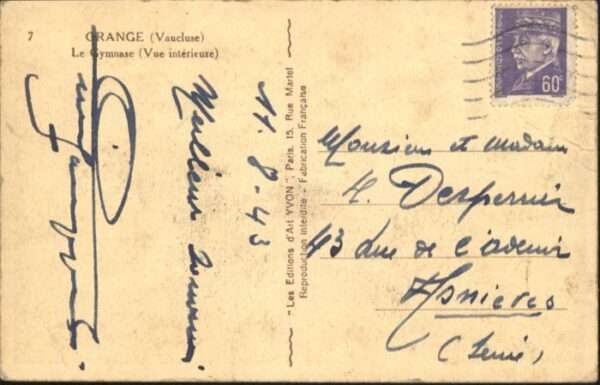 7
ORANGE (Vaucluse)
Le Gymnase (Vue intérieure)
Meilleur souvenir
11.8-43
"Les Editions d'Art YVON", Paris, 15, Rue Martel
Reproduction interdite - Fabrication Française
60c
Monsieur et madame
43 Rue de l'avenir
Asnières
(Seine)